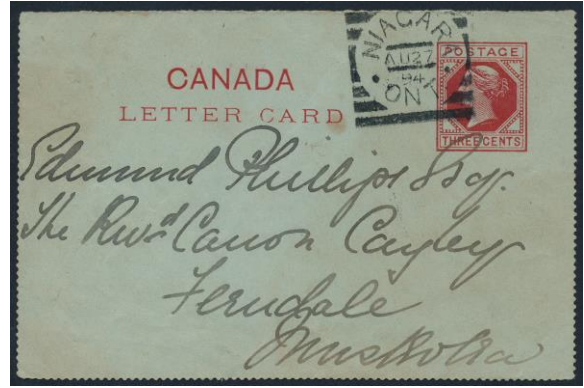 CANADA
LETTER CARD
NIAGARA
AU 27
94
ONT
POSTAGE
THREE CENTS
Edmund Phillips Esq.
The Revd Canon Cayley
Ferndale
Muskoka